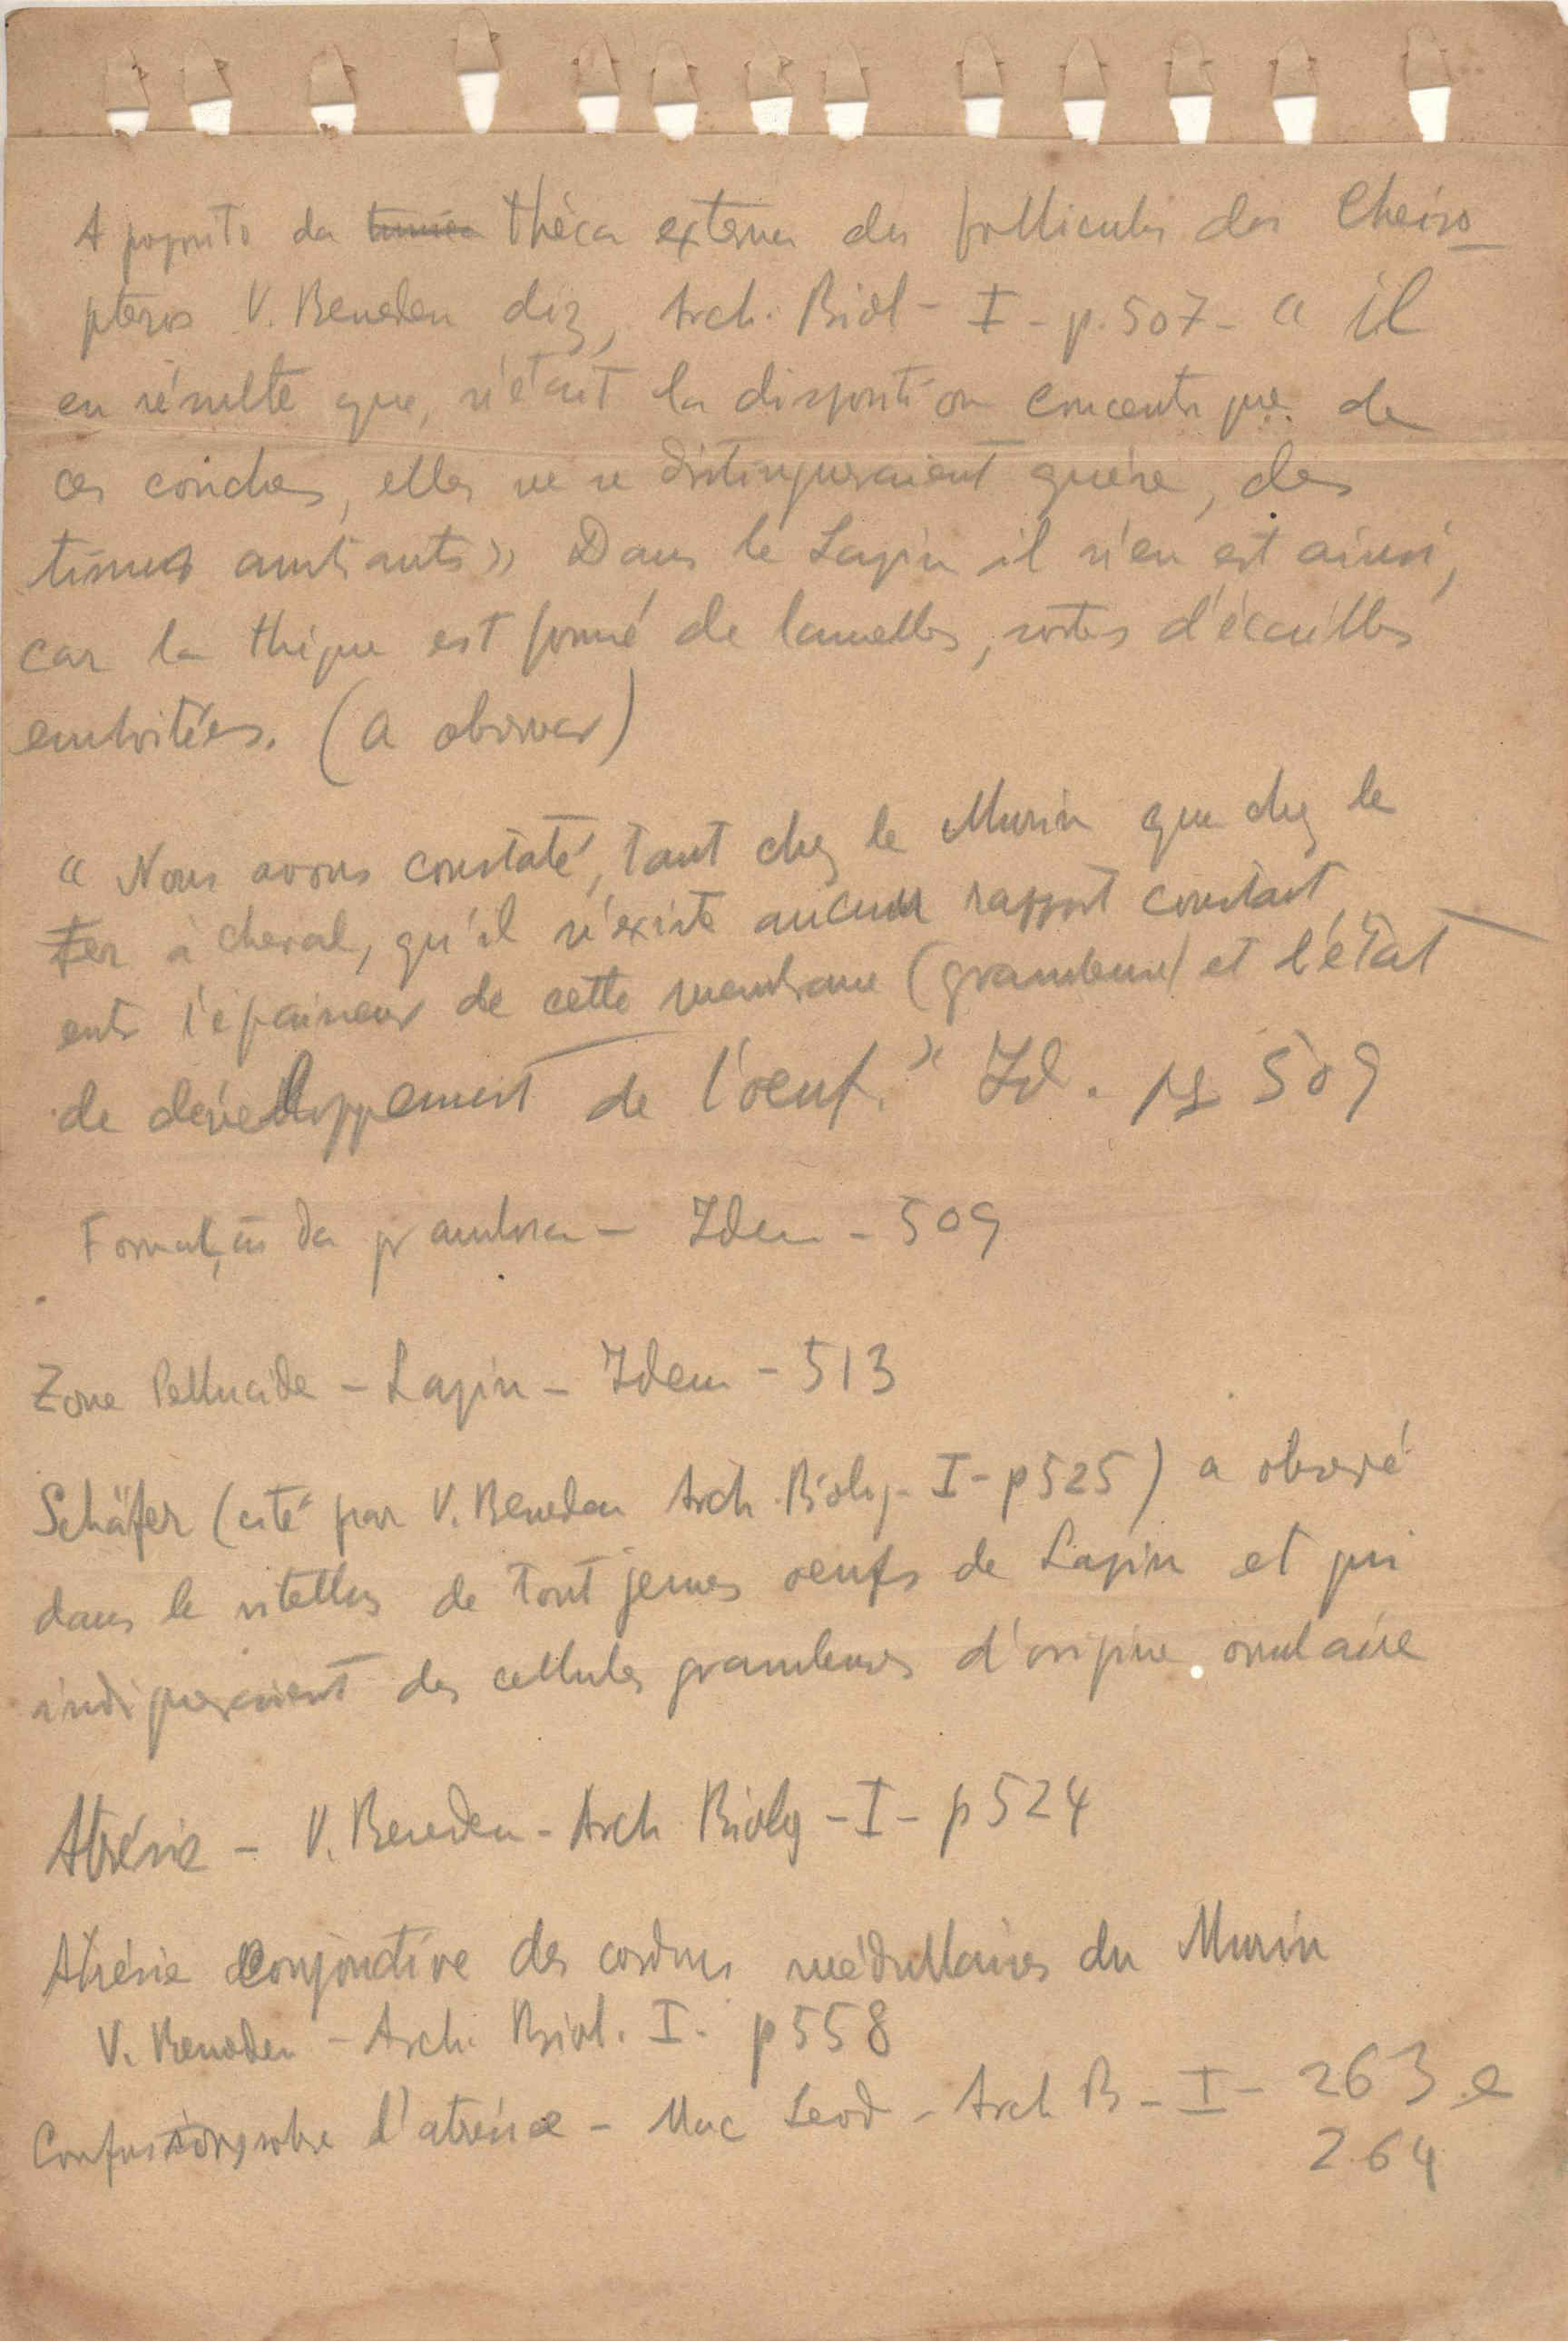 A proposito da tunica théca externa dos folliculos dos Cheiro
pteros V. Beneden diz, Arch. Biol - I - p. 507 - « il
en résulte que, n'était la disposition concentrique de
ces couches, elles ne se distingueraient guère, des
tissus ambiants » Dans le Lapin il n'en est ainsi,
car la thèque est formé de lamelles, sortes d'écailles
emboitées. (a observer)
« Nous avons constaté, tant chez le Murin que chez le
Fer à cheval, qu'il n'existe aucun rapport constant
entre l'épaisseur de cette membrane (granuleuse) et l'état
de développement de l'oeuf. » Id. pg 509
Formação da granulosa - Idem - 509
Zone Pellucide - Lapin - Idem - 513
Schäfer (cité par V. Beneden Arch. Biolog. I - p 525) a observé
dans le vitellus de tout jeunes oeufs de Lapin et qui
indiqueraient des cellules granuleuses d'origine ovulaire
Atrésie - V. Beneden - Arch Biolg - I - p 524
Atrésie conjonctive des cordons médullaires du Murin
V. Beneden - Arch. Biol. I. p 558
Confusions sobre l'atrésie - Mac Leod - Arch B - I - 263 e
264